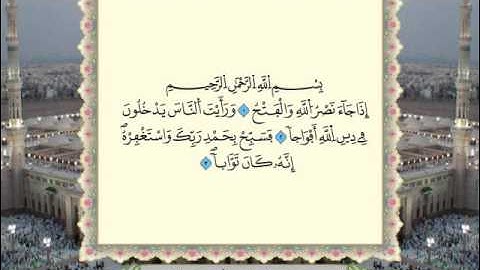 بِسْمِ اللَّهِ الرَّحْمَٰنِ الرَّحِيمِ
إِذَا جَاءَ نَصْرُ اللَّهِ وَالْفَتْحُ ۝١ وَرَأَيْتَ النَّاسَ يَدْخُلُونَ
فِي دِينِ اللَّهِ أَفْوَاجًا ۝٢ فَسَبِّحْ بِحَمْدِ رَبِّكَ وَاسْتَغْفِرْهُ ۚ
إِنَّهُ كَانَ تَوَّابًا ۝٣